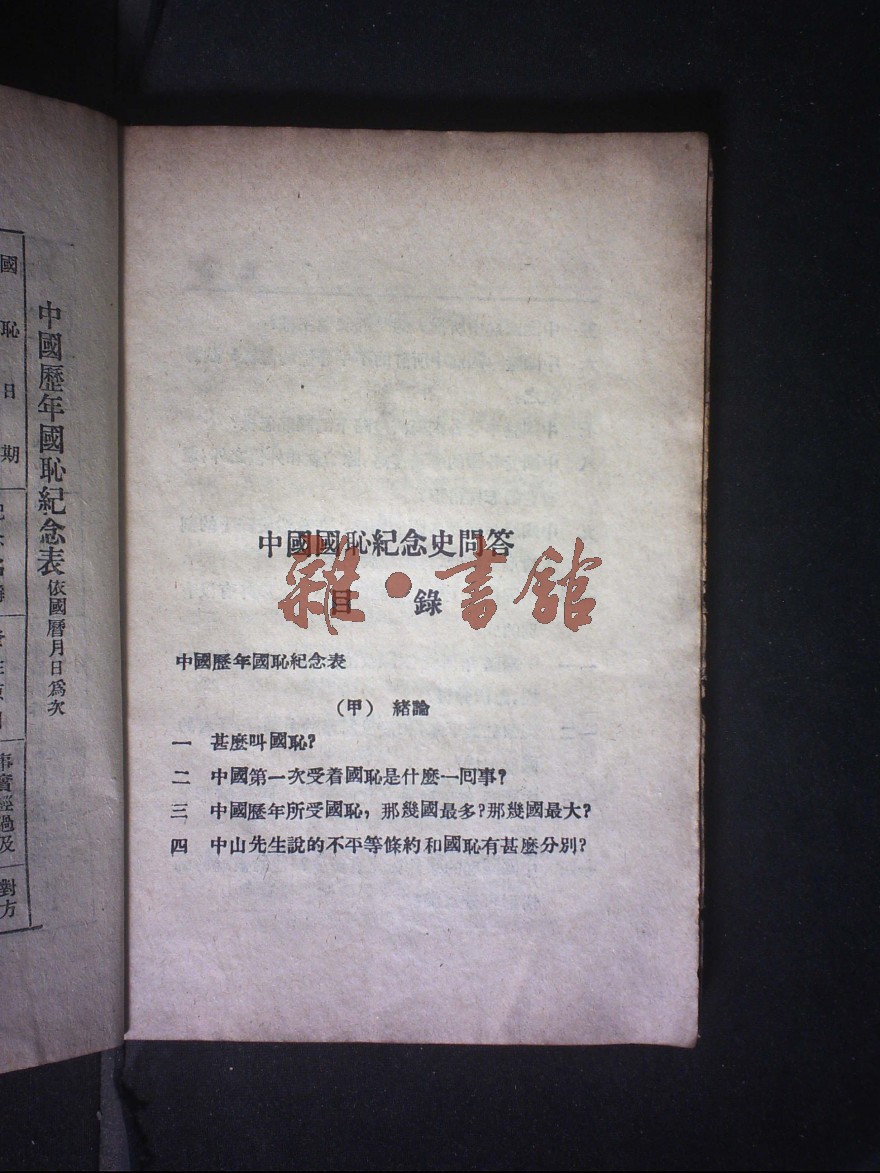 中國國恥紀念史問答
目錄
中國歷年國恥紀念表
(甲) 緒論
一 甚麼叫國恥?
二 中國第一次受着國恥是什麼一回事?
三 中國歷年所受國恥，那幾國最多?那幾國最大?
四 中山先生說的不平等條約和國恥有甚麼分別?
雜·書館
中國歷年國恥紀念表 依國曆月日爲次
國恥日期
事實經過及
對方